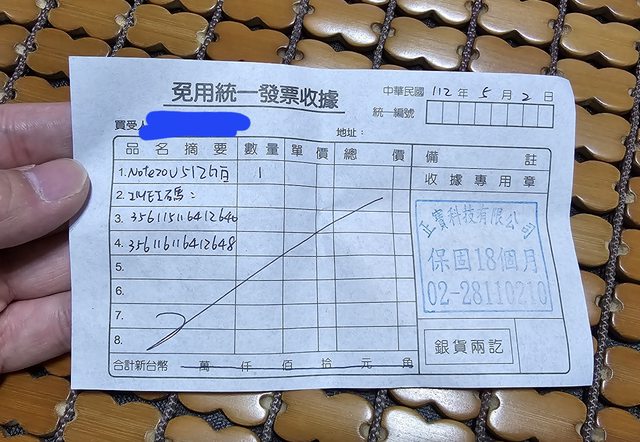 免用統一發票收據
中華民國 112 年 5 月 2 日
統一編號
買受人
地址：
品名摘要 數量 單價 總價 備註
1. Note20U 512G 1
收據專用章
2. IMEI碼:
3. 356115116412640
4. 356116116412648
5.
6.
7.
8.
正寶科技有限公司
保固18個月
02-28110210
銀貨兩訖
合計新台幣 萬 仟 佰 拾 元 角